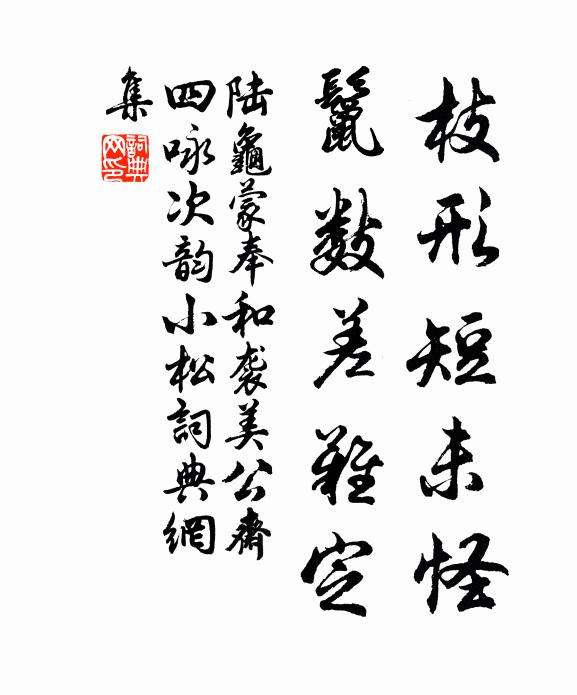 枝形短未怪
鬣數差難定
陆龜蒙奉和袭美公齋
四咏次韵小松詞典網
集
詞典
网印